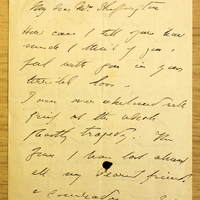 My dear Mrs. Skeffington
How can I tell you how
much I think of you &
feel with you in your
terrible loss.
I am overwhelmed with
grief at the whole
ghastly tragedy. The
I have lost almost
all my dearest friends
& comrades